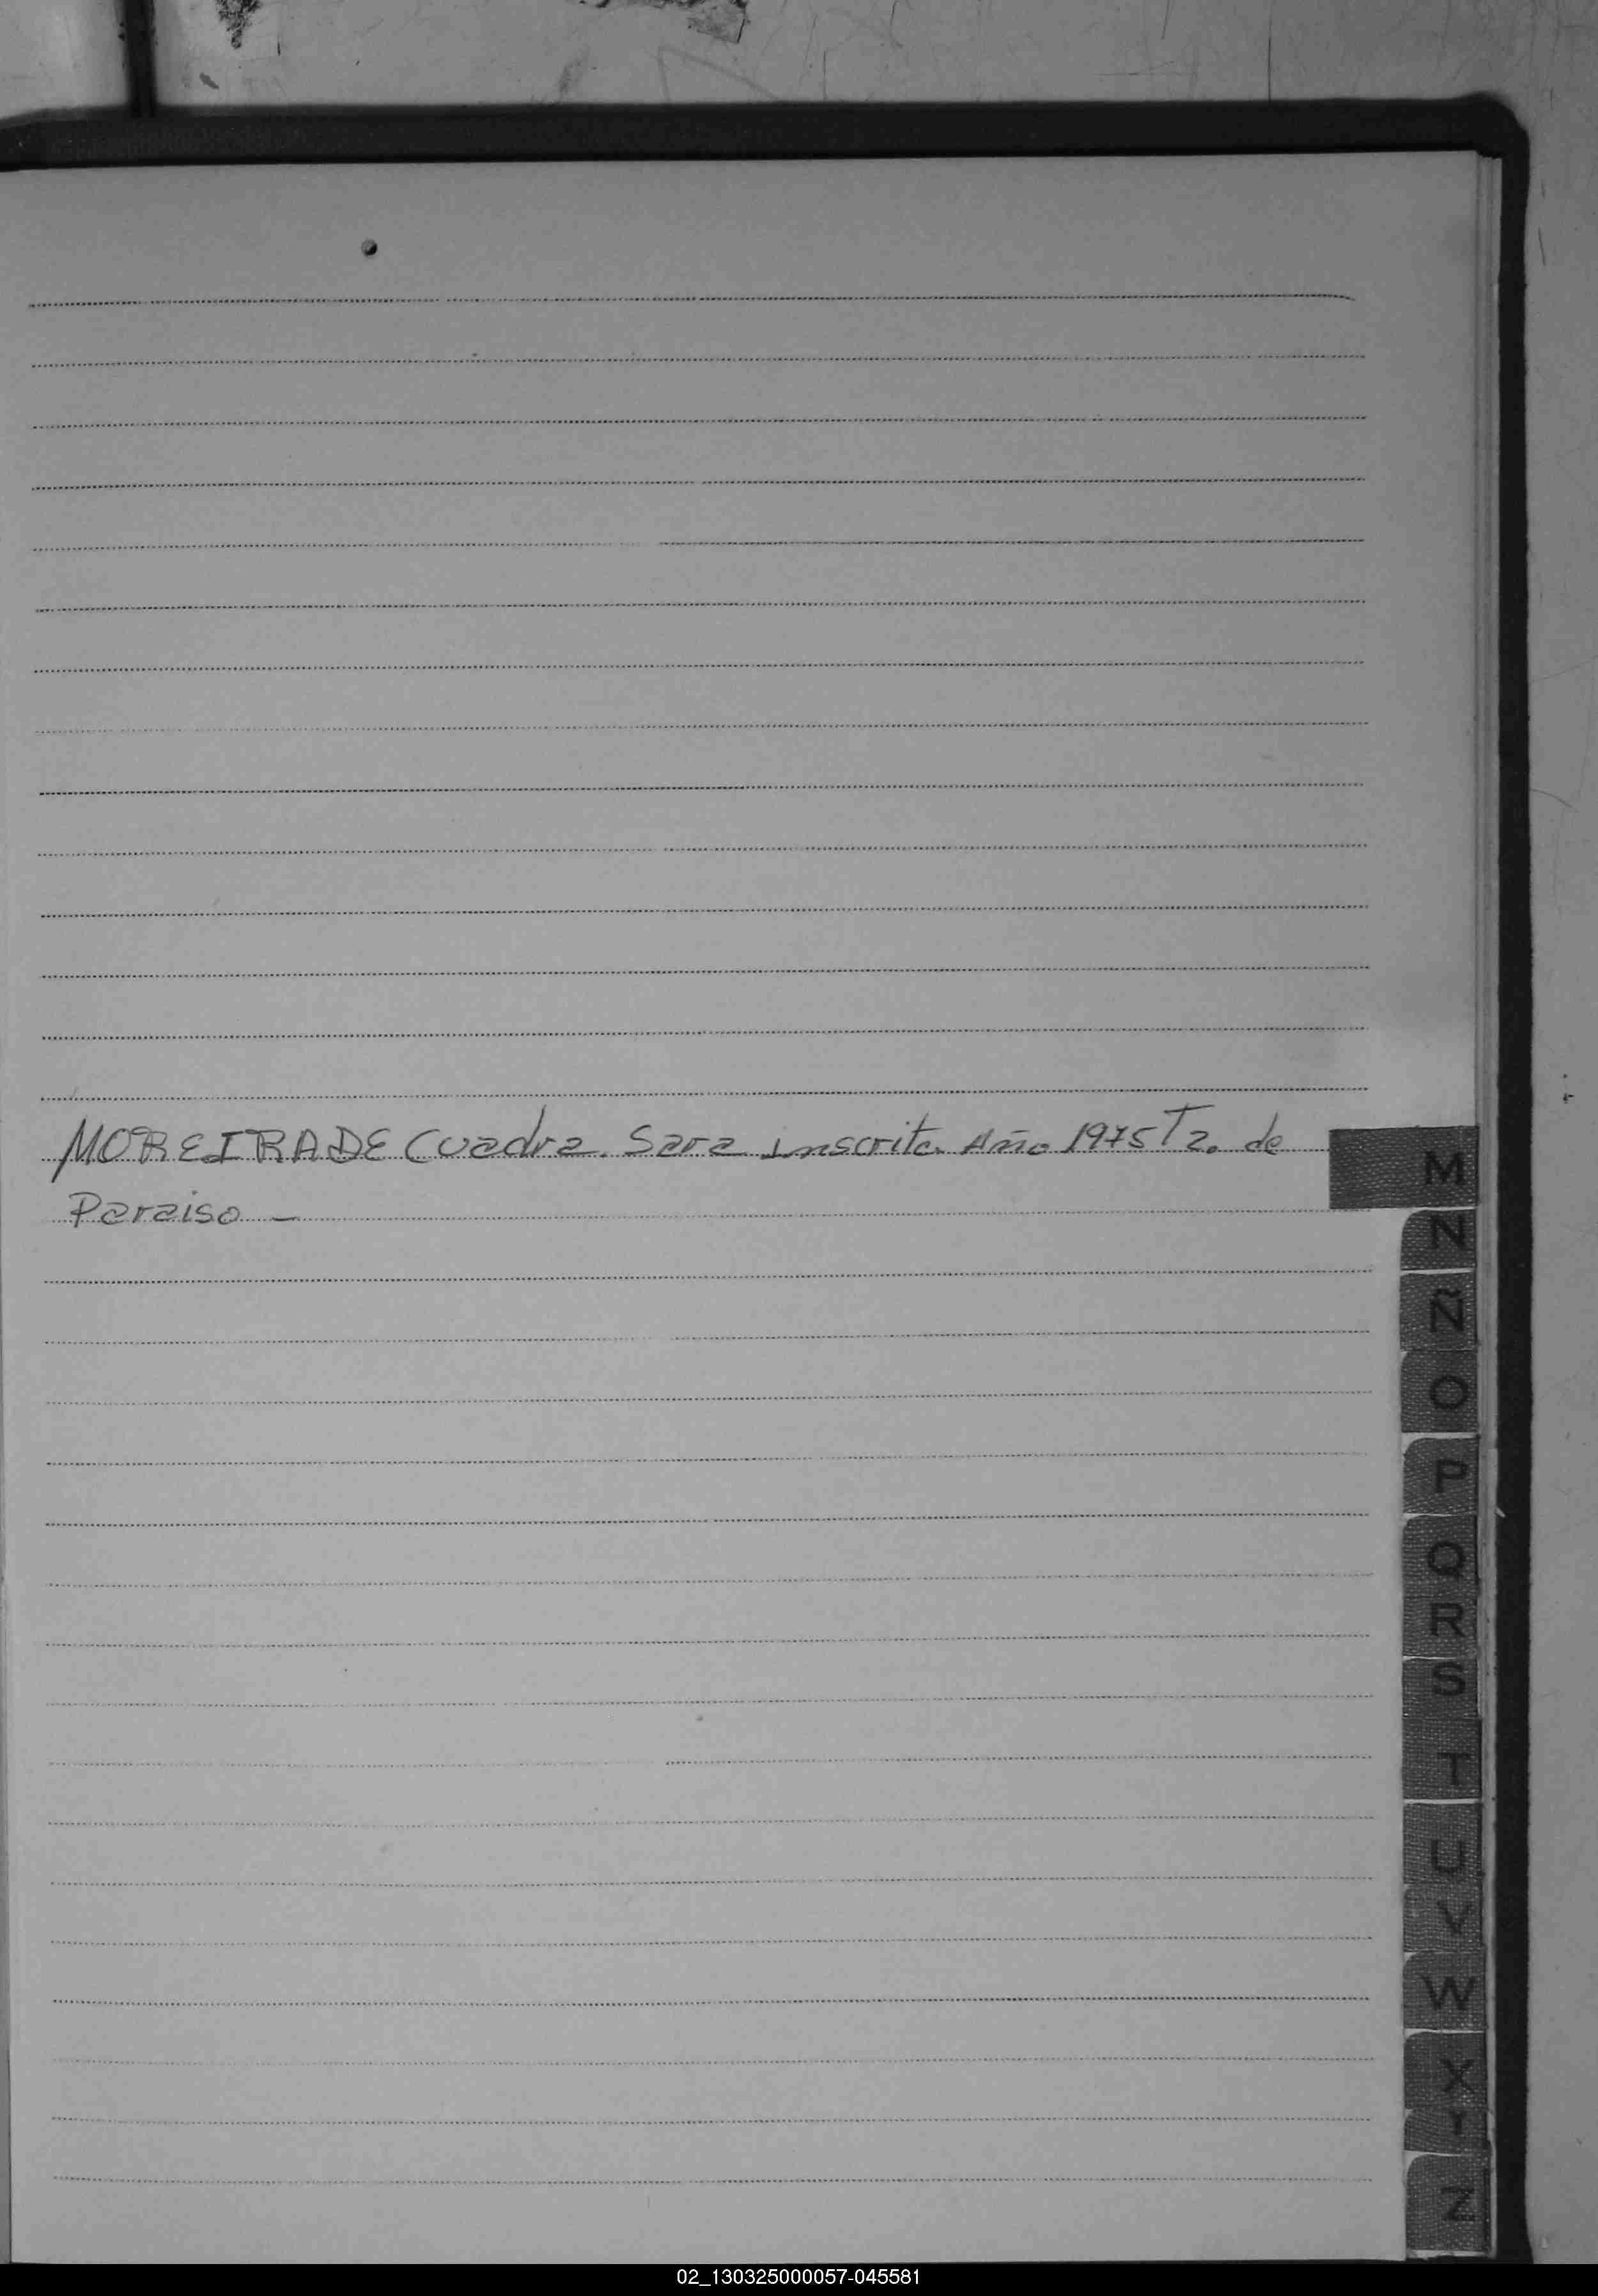 MOREIRA DE Cuadra. Sara inscrita. Año 1975 T2. de
Paraiso -
M
N
Ñ
O
P
Q
R
S
T
U
V
W
X
Y
Z
02_130325000057-045581